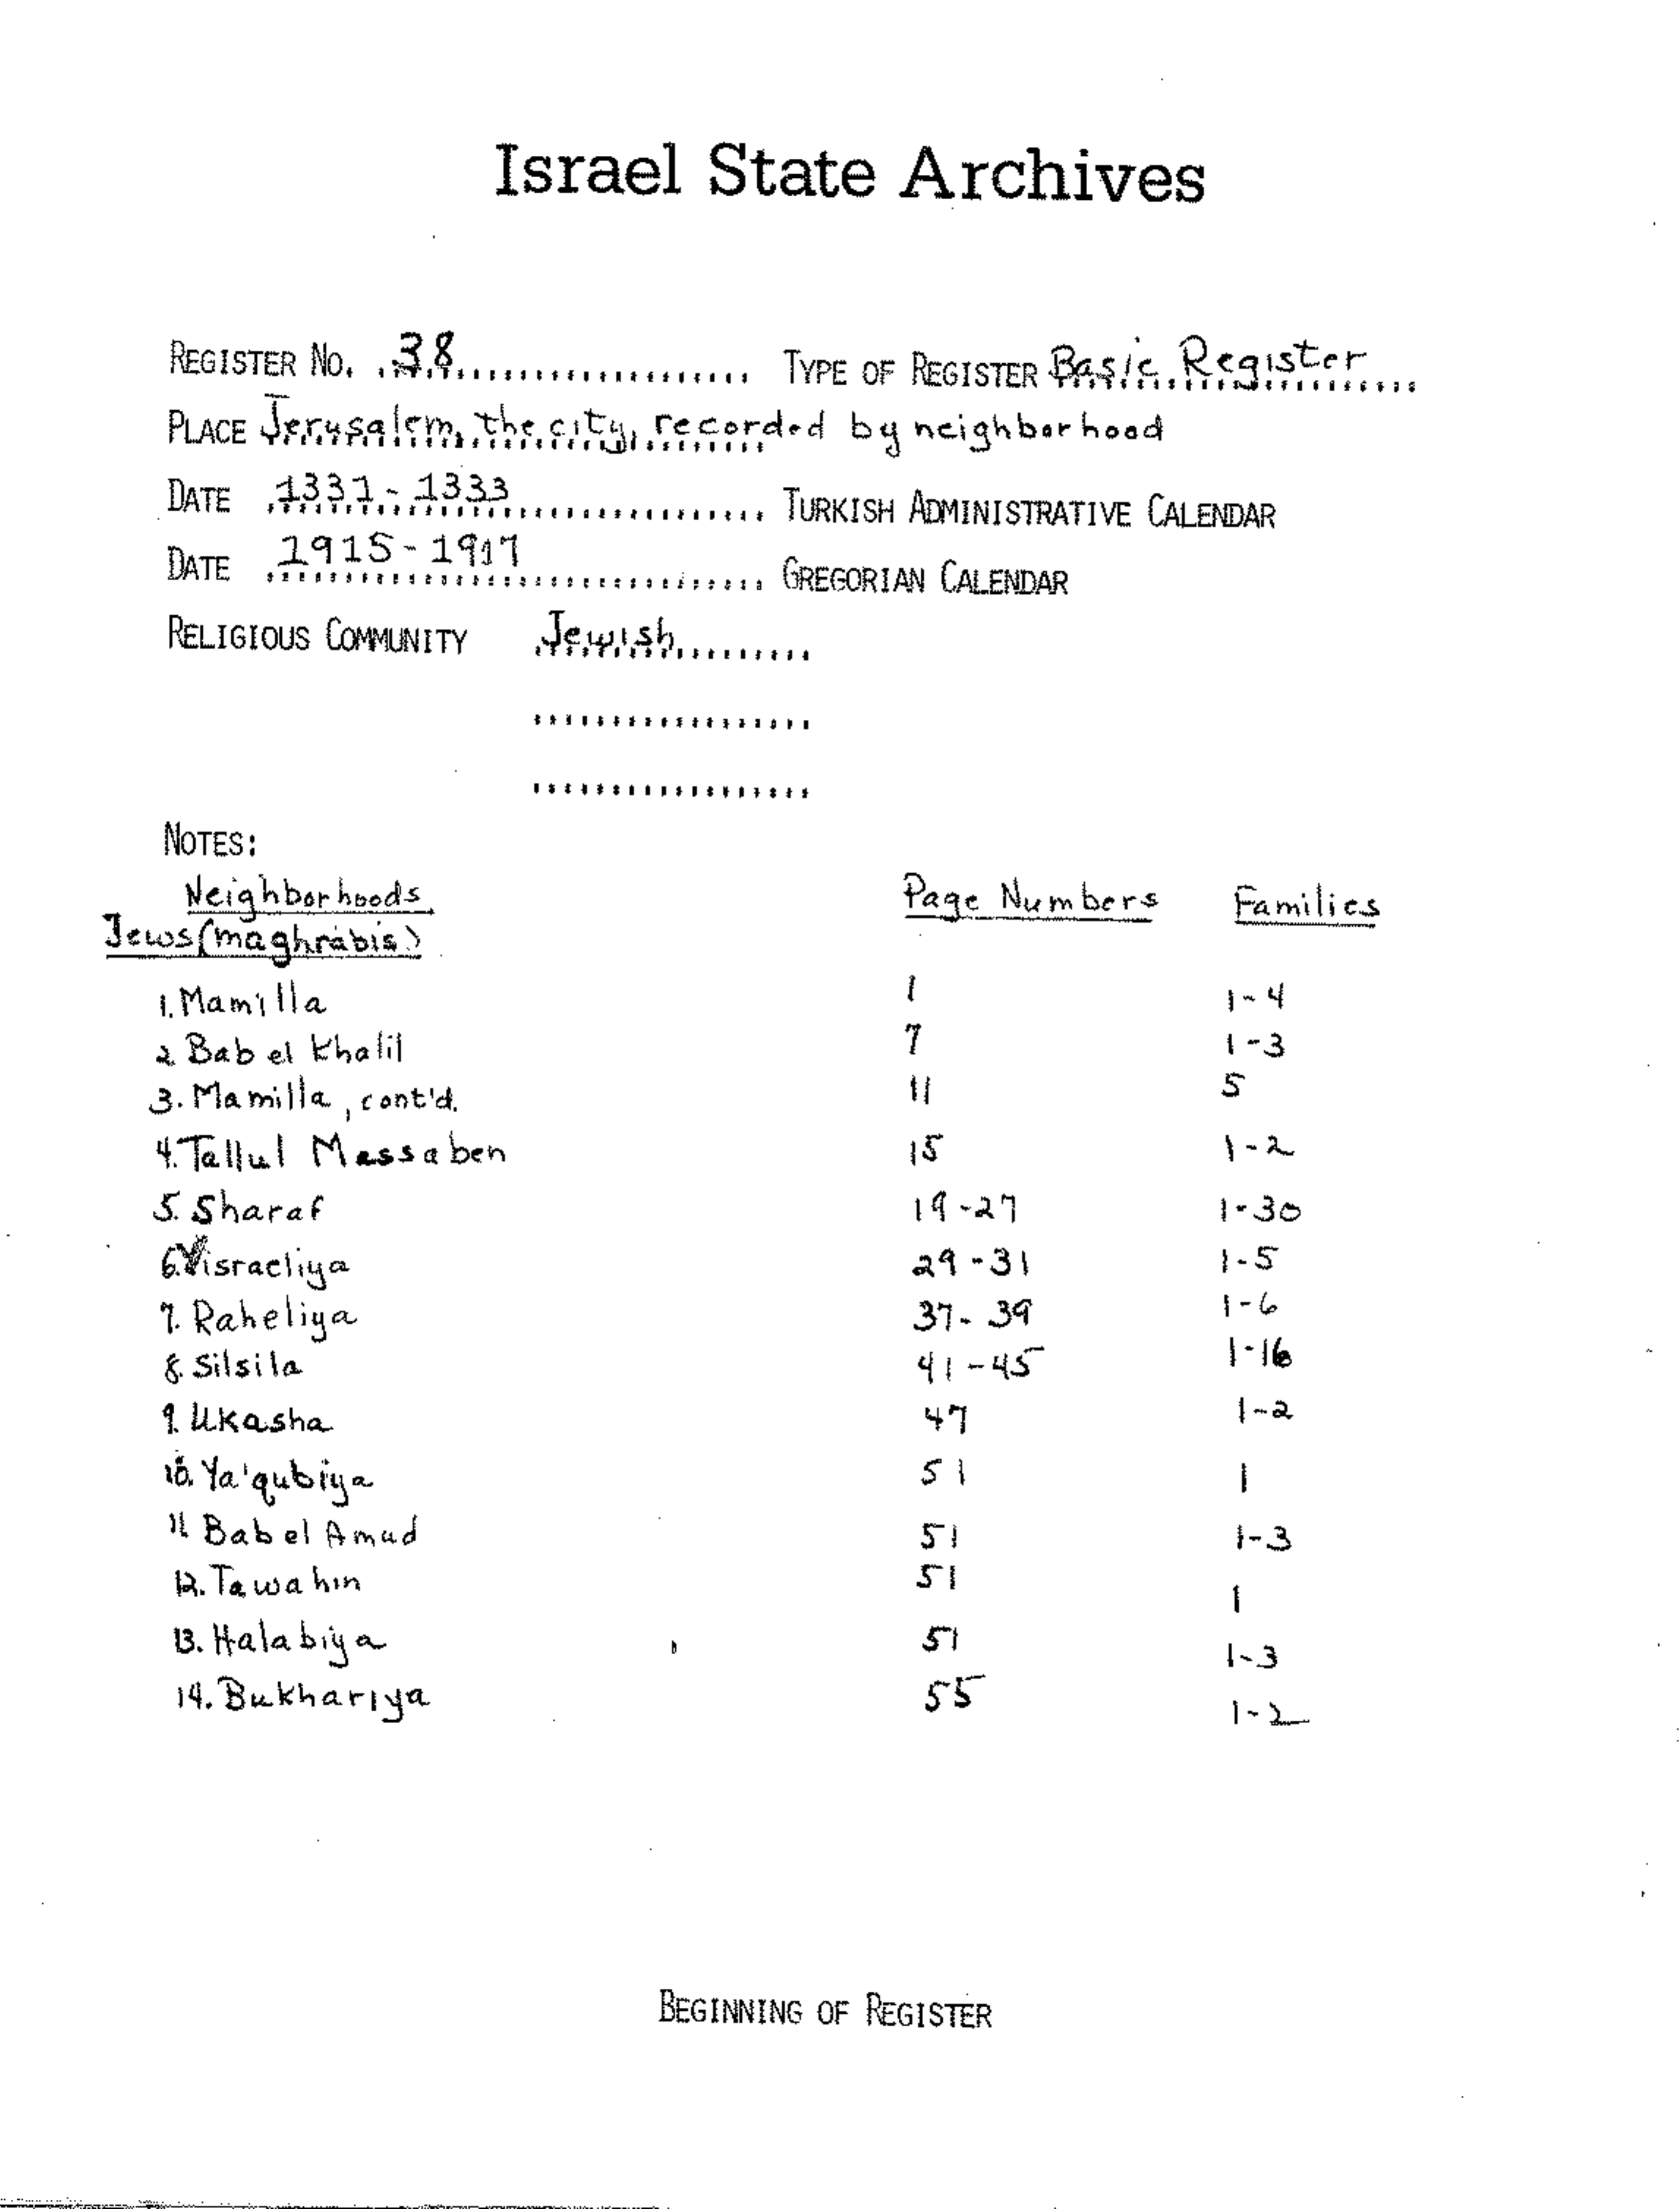 Israel State Archives
REGISTER NO. 38 TYPE OF REGISTER Basic Register
PLACE Jerusalem, the city, recorded by neighborhood
DATE 1331-1333 TURKISH ADMINISTRATIVE CALENDAR
DATE 1915-1917 GREGORIAN CALENDAR
RELIGIOUS COMMUNITY Jewish
NOTES:
Neighborhoods Page Numbers Families
Jews (maghrabis)
1. Mamilla 1 1-4
2 Bab el Khalil 7 1-3
3. Mamilla, cont'd. 11 5
4. Tallul Massaben 15 1-2
5. Sharaf 19-27 1-30
6. Yisraeliya 29-31 1-5
7. Raheliya 37-39 1-6
8. Silsila 41-45 1-16
9. Ukasha 47 1-2
10. Ya'qubiya 51 1
11 Bab el Amud 51 1-3
12. Tawahin 51 1
13. Halabiya 51 1-3
14. Bukhariya 55 1-2
BEGINNING OF REGISTER